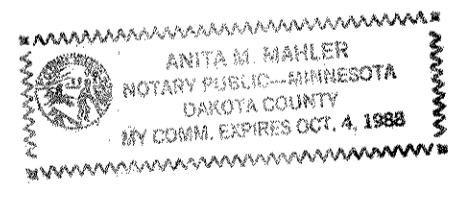 ANITA M. MAHLER
NOTARY PUBLIC—MINNESOTA
DAKOTA COUNTY
MY COMM. EXPIRES OCT. 4, 1988